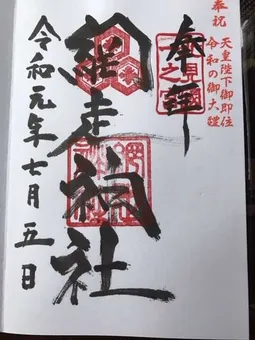 奉祝
天皇陛下御即位
令和の御大禮
奉拝
網走神社
令和元年七月五日